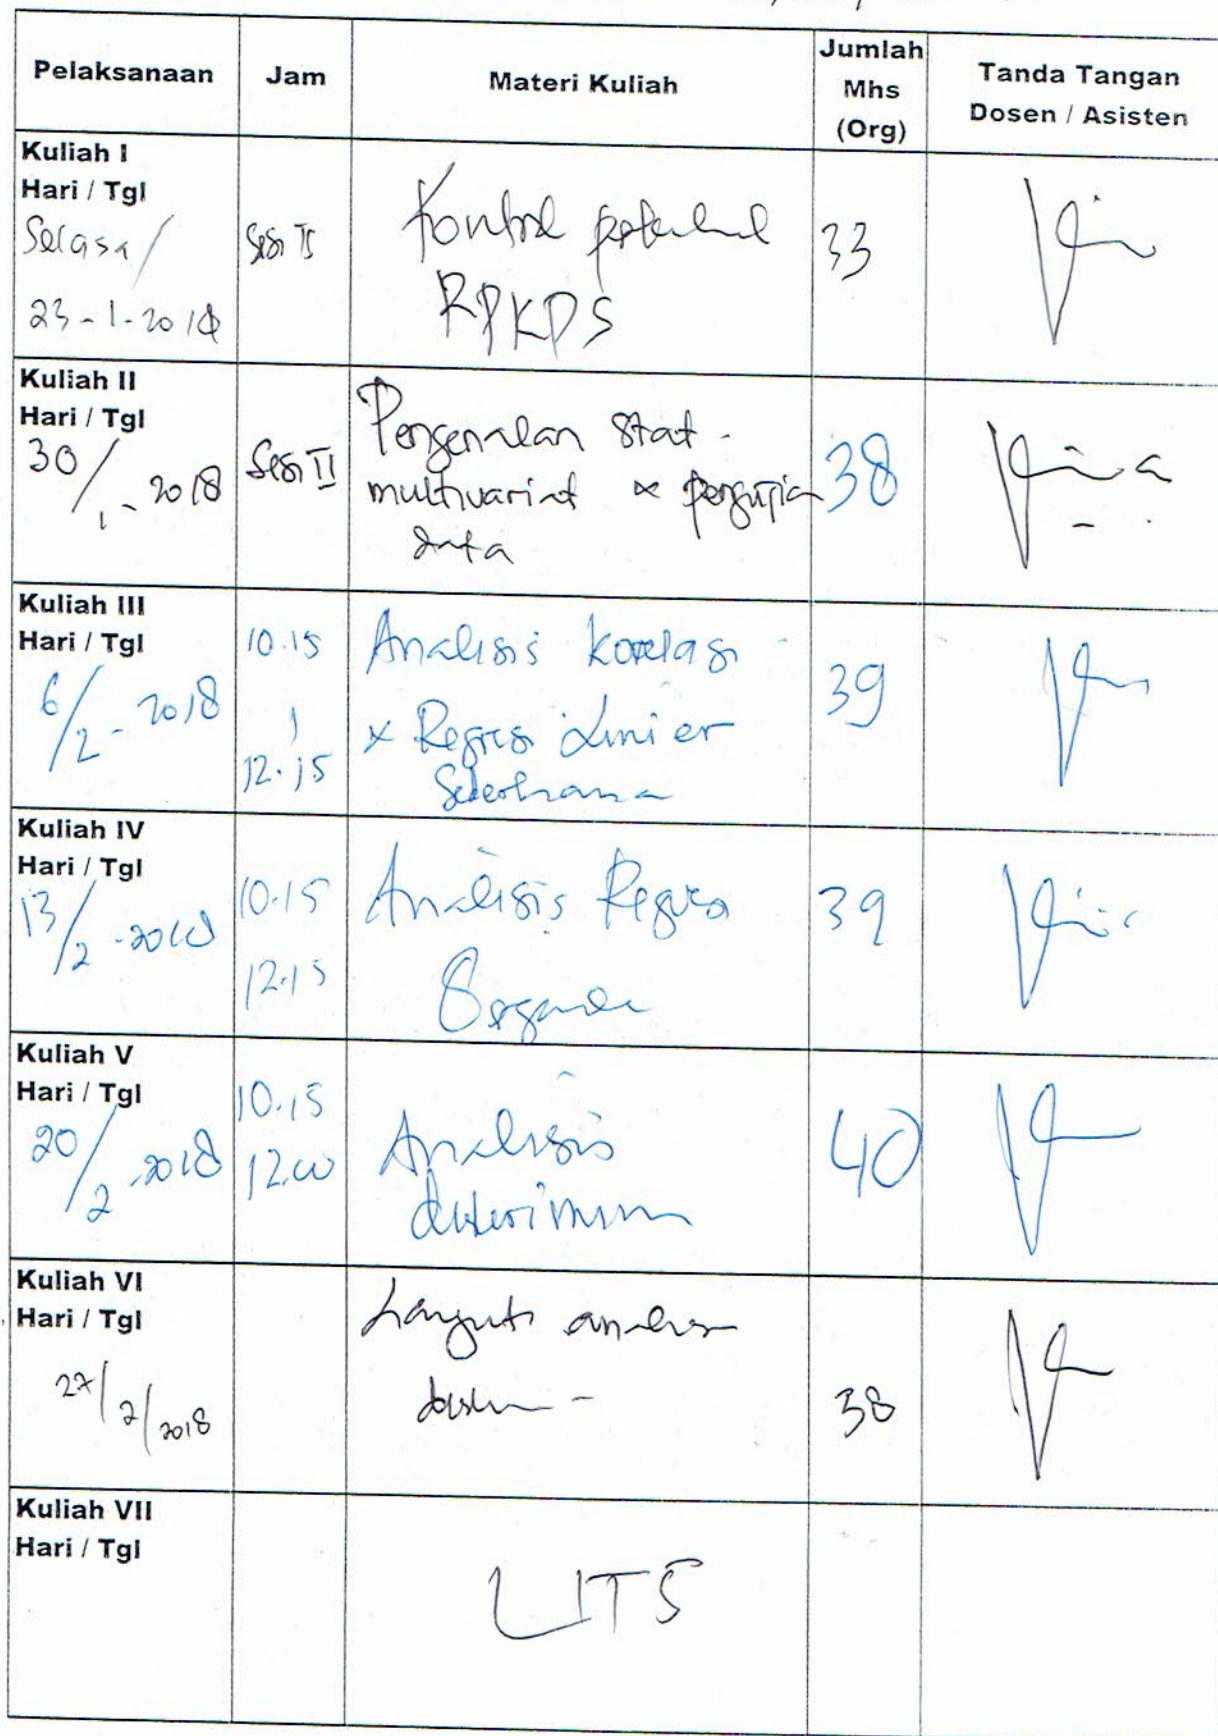 Pelaksanaan Jam Materi Kuliah Jumlah Mhs (Org) Tanda Tangan Dosen / Asisten
Kuliah I
Hari / Tgl
Selasa /
23-1-2018
Sesi II
Kontrol
RPKPS
33
Kuliah II
Hari / Tgl
30/1-2018
Sesi II
Pengenalan Stat.
multivariat & pengujian
data
38
Kuliah III
Hari / Tgl
6/2-2018
10.15
12.15
Analisis Korelasi
& Regresi Linier
Sederhana
39
Kuliah IV
Hari / Tgl
13/2-2018
10.15
12.15
Analisis Regresi
39
Kuliah V
Hari / Tgl
20/2-2018
10.15
12.00
Analisis
40
Kuliah VI
Hari / Tgl
27/2/2018
38
Kuliah VII
Hari / Tgl
UTS